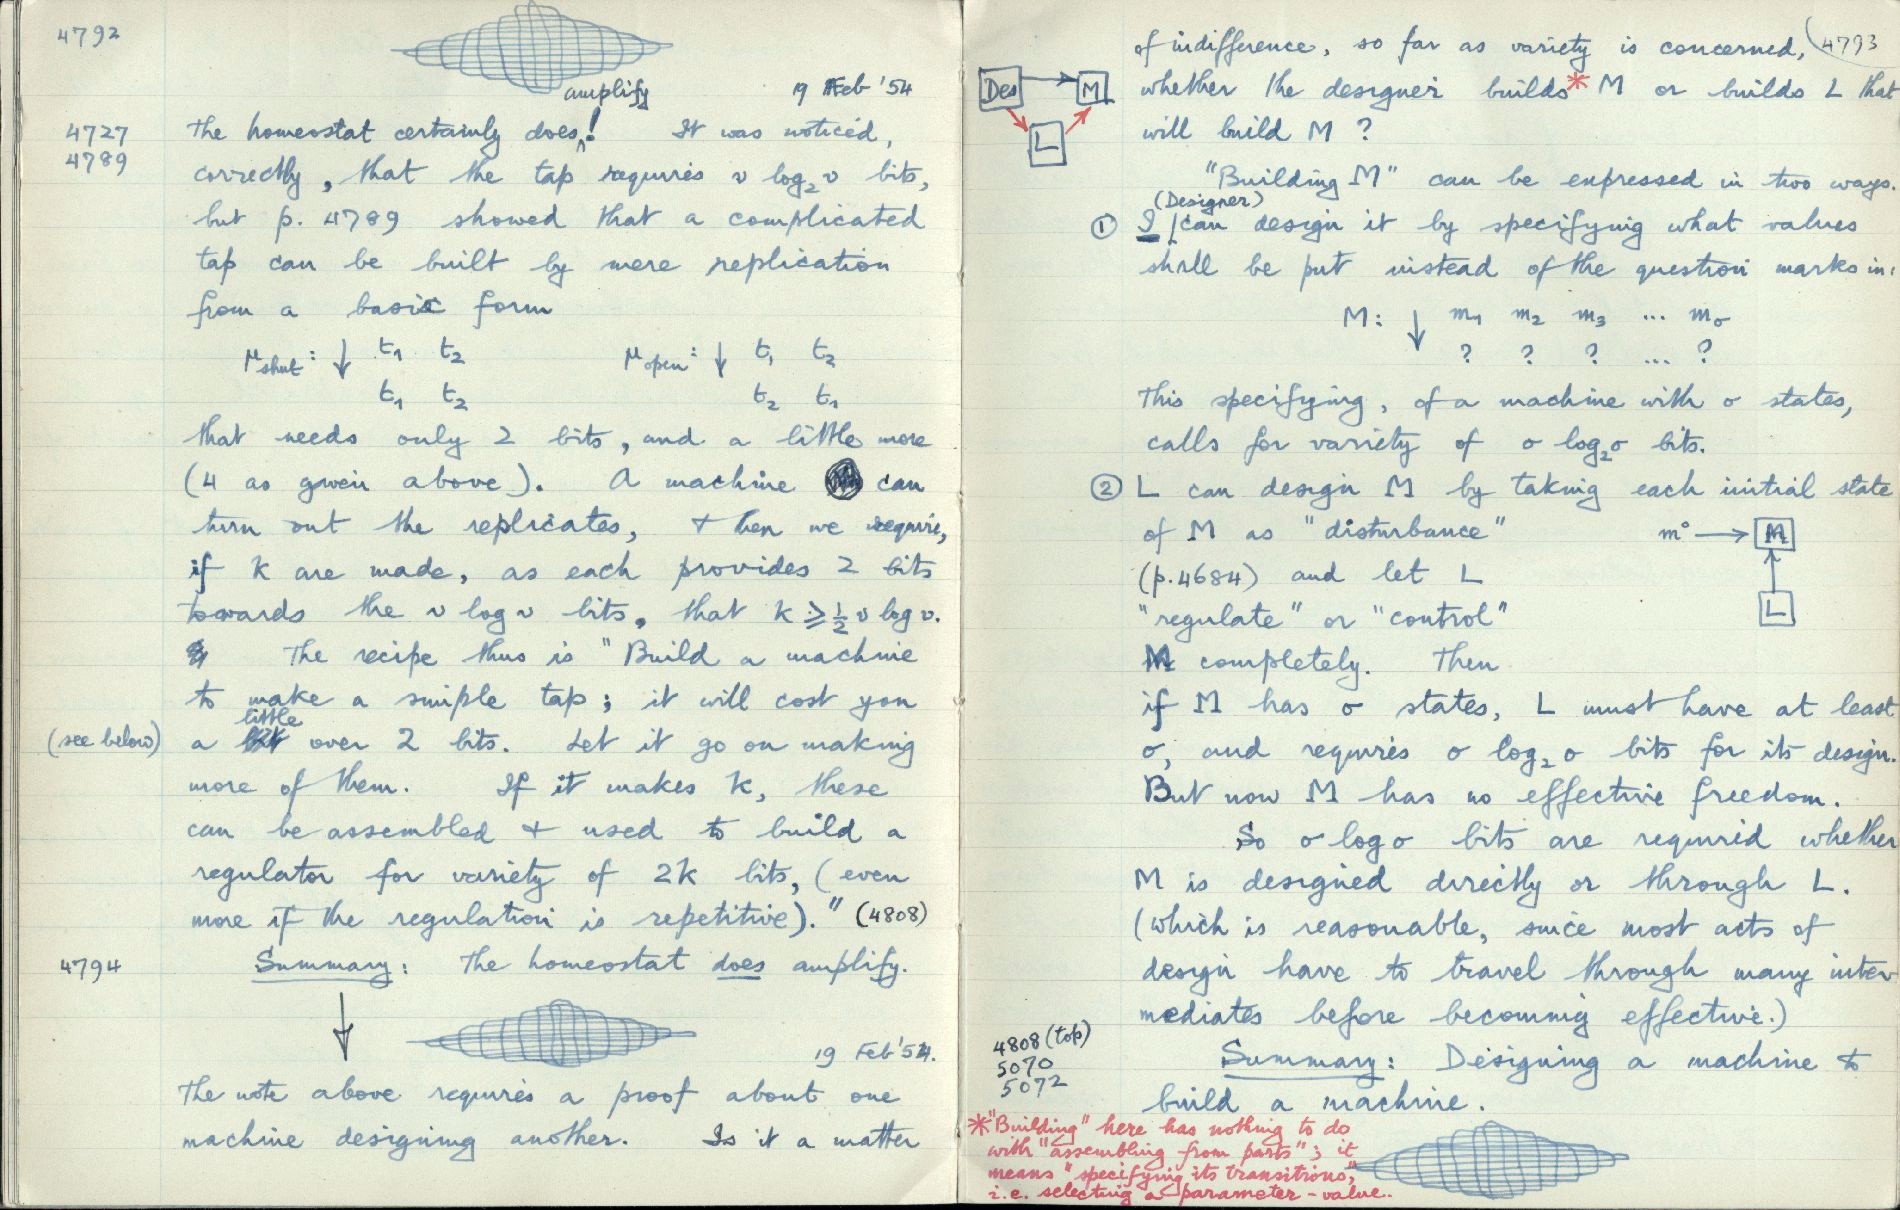 4792
19 Feb '54
amplify
4727
4789
The homeostat certainly does! It was noticed,
correctly, that the tap requires v log₂ v bits,
but p. 4789 showed that a complicated
tap can be built by mere replication
from a basic form
μshut: ↓ t₁ t₂ μopen: ↓ t₁ t₂
t₁ t₂ t₂ t₁
that needs only 2 bits, and a little more
(4 as given above). A machine can
turn out the replicates, + then we require,
if k are made, as each provides 2 bits
towards the v log v bits, that k ⩾ ½ v log v.
The recipe thus is "Build a machine
to make a simple tap; it will cost you
little
(see below) a over 2 bits. Let it go on making
more of them. If it makes k, these
can be assembled + used to build a
regulator for variety of 2k bits, (even
more if the regulation is repetitive)." (4808)
4794 Summary: The homeostat does amplify.
19 Feb '54.
The note above requires a proof about one
machine designing another. Is it a matter
4793
of indifference, so far as variety is concerned,
Des M
L
whether the designer builds* M or builds L that
will build M ?
"Building M" can be expressed in two ways.
(Designer)
① I can design it by specifying what values
shall be put instead of the question marks in:
M: ↓ m₁ m₂ m₃ ... mσ
? ? ? ... ?
This specifying, of a machine with σ states,
calls for variety of σ log₂ σ bits.
② L can design M by taking each initial state
of M as "disturbance"
m° → M
L
(p.4684) and let L
"regulate" or "control"
M completely. Then
if M has σ states, L must have at least
σ, and requires σ log₂ σ bits for its design.
But now M has no effective freedom.
So σ log σ bits are required whether
M is designed directly or through L.
(which is reasonable, since most acts of
design have to travel through many inter-
mediates before becoming effective.)
4808 (top)
5070
5072
Summary: Designing a machine to
build a machine.
*"Building" here has nothing to do
with "assembling from parts"; it
means "specifying its transitions,"
i.e. selecting a parameter-value.